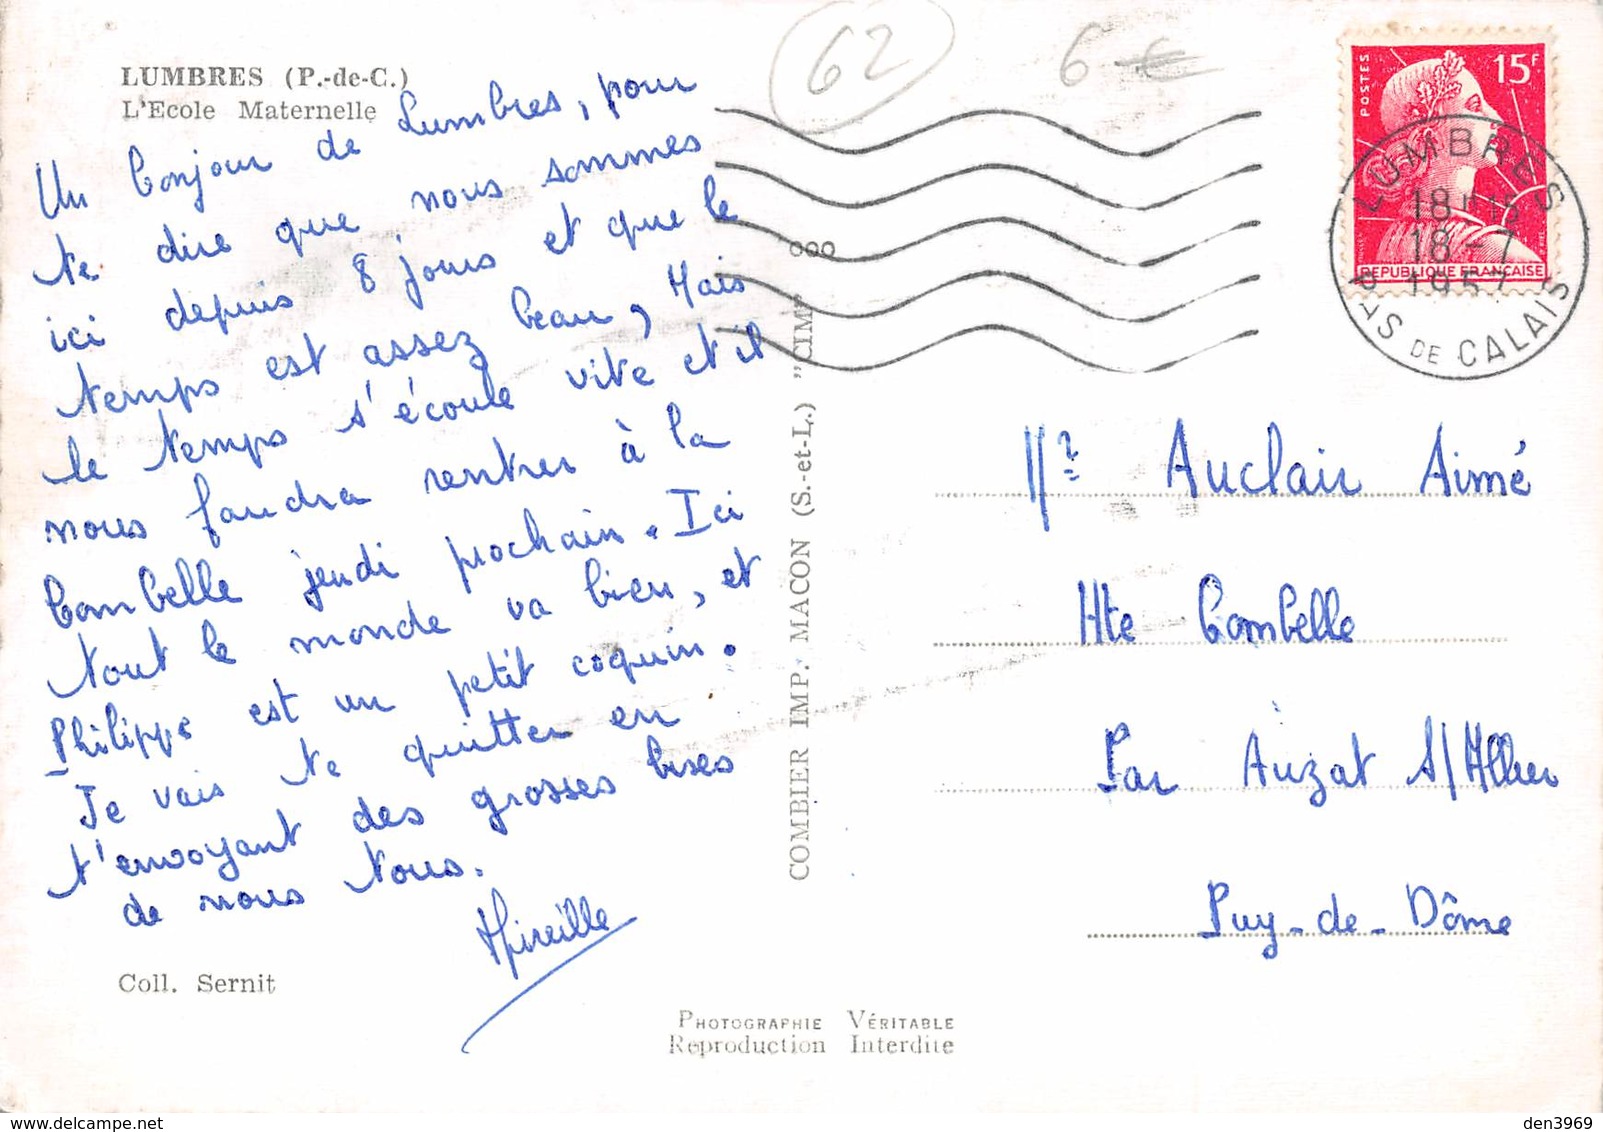 LUMBRES (P.-de-C.)
L'Ecole Maternelle
Un bonjour de Lumbres, pour
te dire que nous sommes
ici depuis 8 jours et que le
temps est assez beau, Mais
le temps s'écoule vite et il
nous faudra rentrer à la
Combelle jeudi prochain. Ici
tout le monde va bien, et
Philippe est un petit coquin.
Je vais te quitter en
t'envoyant des grosses bises
de nous tous.
Mireille
Coll. Sernit
COMBIER IMP. MACON (S.-et-L.) "CIM"
PHOTOGRAPHIE VÉRITABLE
Reproduction Interdite
62
6 €
POSTES
15F
REPUBLIQUE FRANÇAISE
LUMBRES
18H15
18-7
1957
PAS DE CALAIS
Mr Auclair Aimé
Hte Combelle
Par Auzat s/Allier
Puy-de-Dôme
den3969